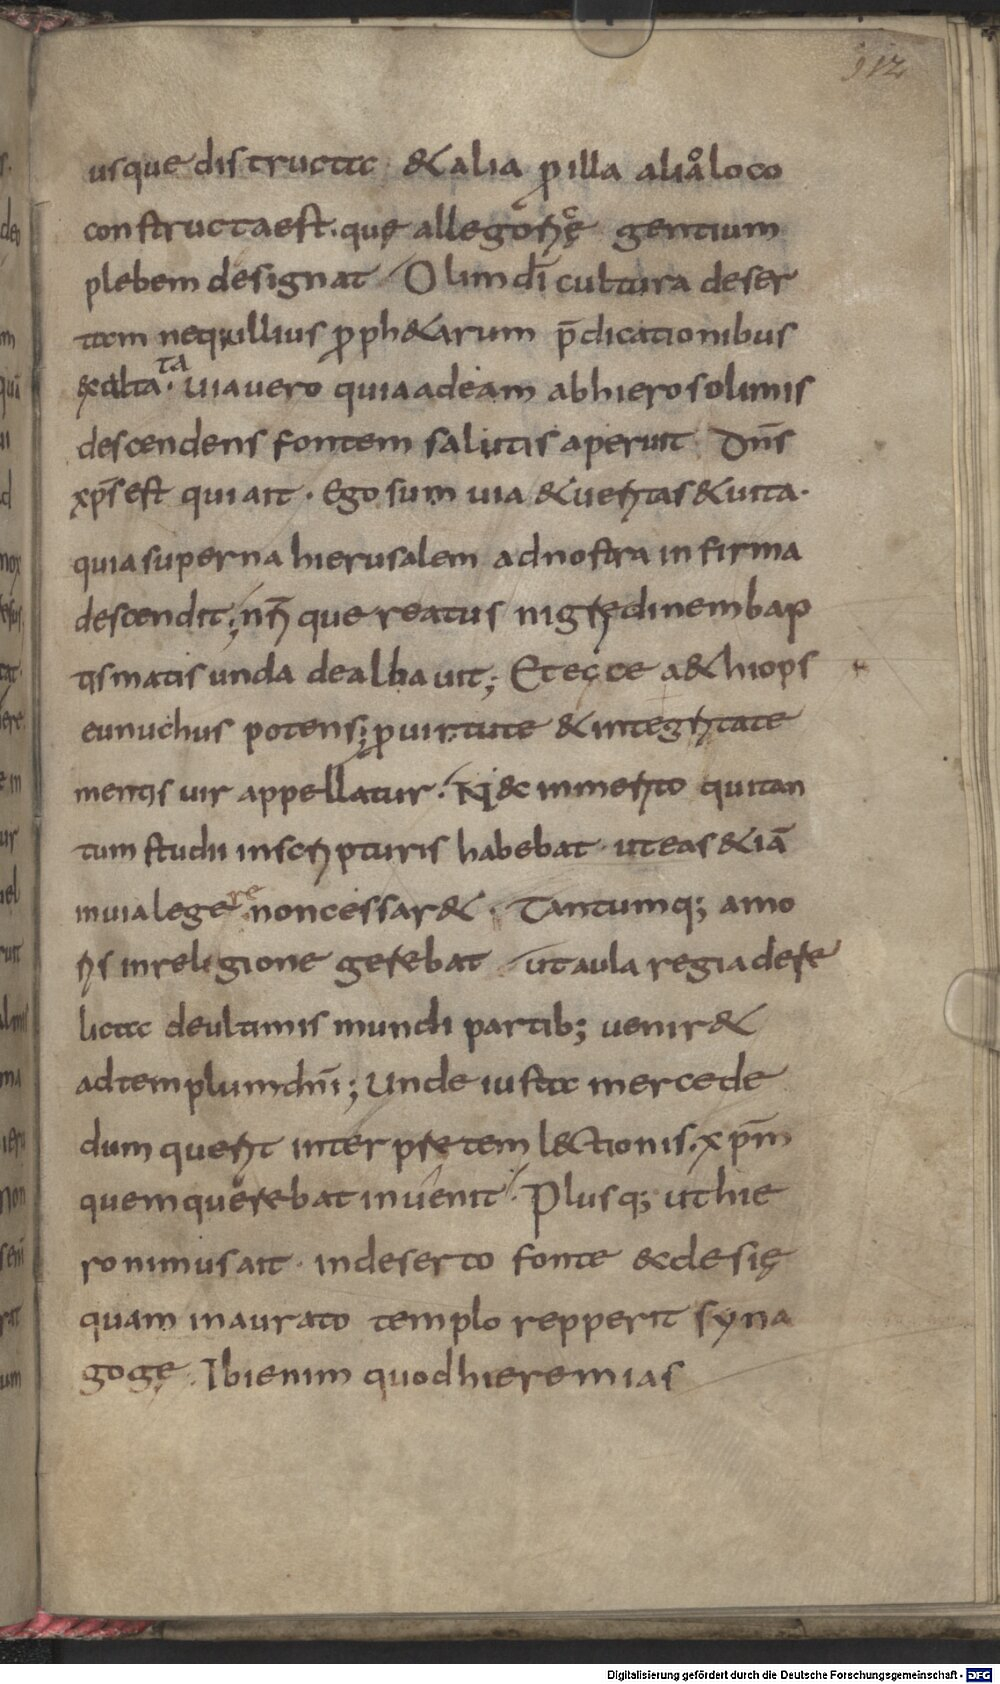 112
usque distructa & alia ꝓ illa alia̐ loco
constructa est. quę allegoricę gentium
plebem designat Olim dī cultura deser
tam neq; ullius ꝓph&arum p̄dicationibus
excultata. Uia uero quia ad eam ab hierosolimis
descendens fontem salutis aperuit Dn̄s
xp̄s est qui ait. Ego sum uia & ueritas & uita.
quia superna hierusalem ad nostra infirma
descendit; nr̄ique reatus nigredinem bap
tismatis unda dealbauit; Et ecce a&hiops
eunuchus potens; ꝓ uirtute & integritate
mentis uir appellatur. Nec inmerito qui tan
tum studii in scripturis habebat ut eas &iā
in uia legere non cessar&. Tantumq; amo
ris in religione gerebat ut aula regia dere
licta de ultimis mundi partib; uenir&
ad templum dn̄i; Unde iusta mercede
dum querit interpretem l&ctionis. xp̄m
quem querebat inuenit. Plusq; ut hie
ronimus ait. in deserto fonte ecclesię
quam in aurato templo repperit syna
gogę. Ibi enim quod hieremias
Digitalisierung gefördert durch die Deutsche Forschungsgemeinschaft - DFG